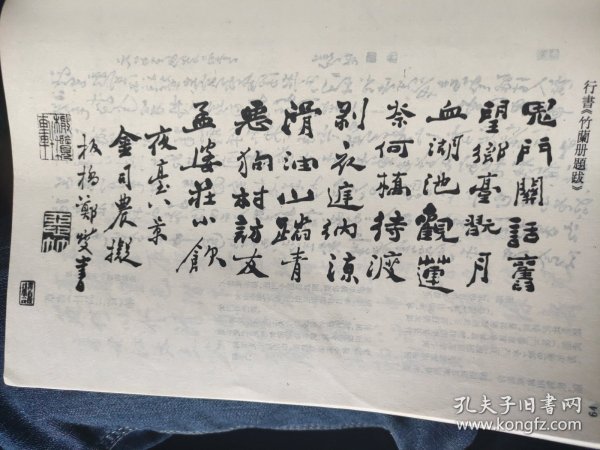 行書《竹蘭册題跋》
鬼門關話舊
望鄉臺翫月
血湖池觀蓮
奈何橋待渡
剥衣廷納凉
滑油山踏青
惡狗村訪友
孟婆莊小飲
夜臺八景
金司農擬
板橋鄭燮書
孔夫子旧书网
www.kongfz.com